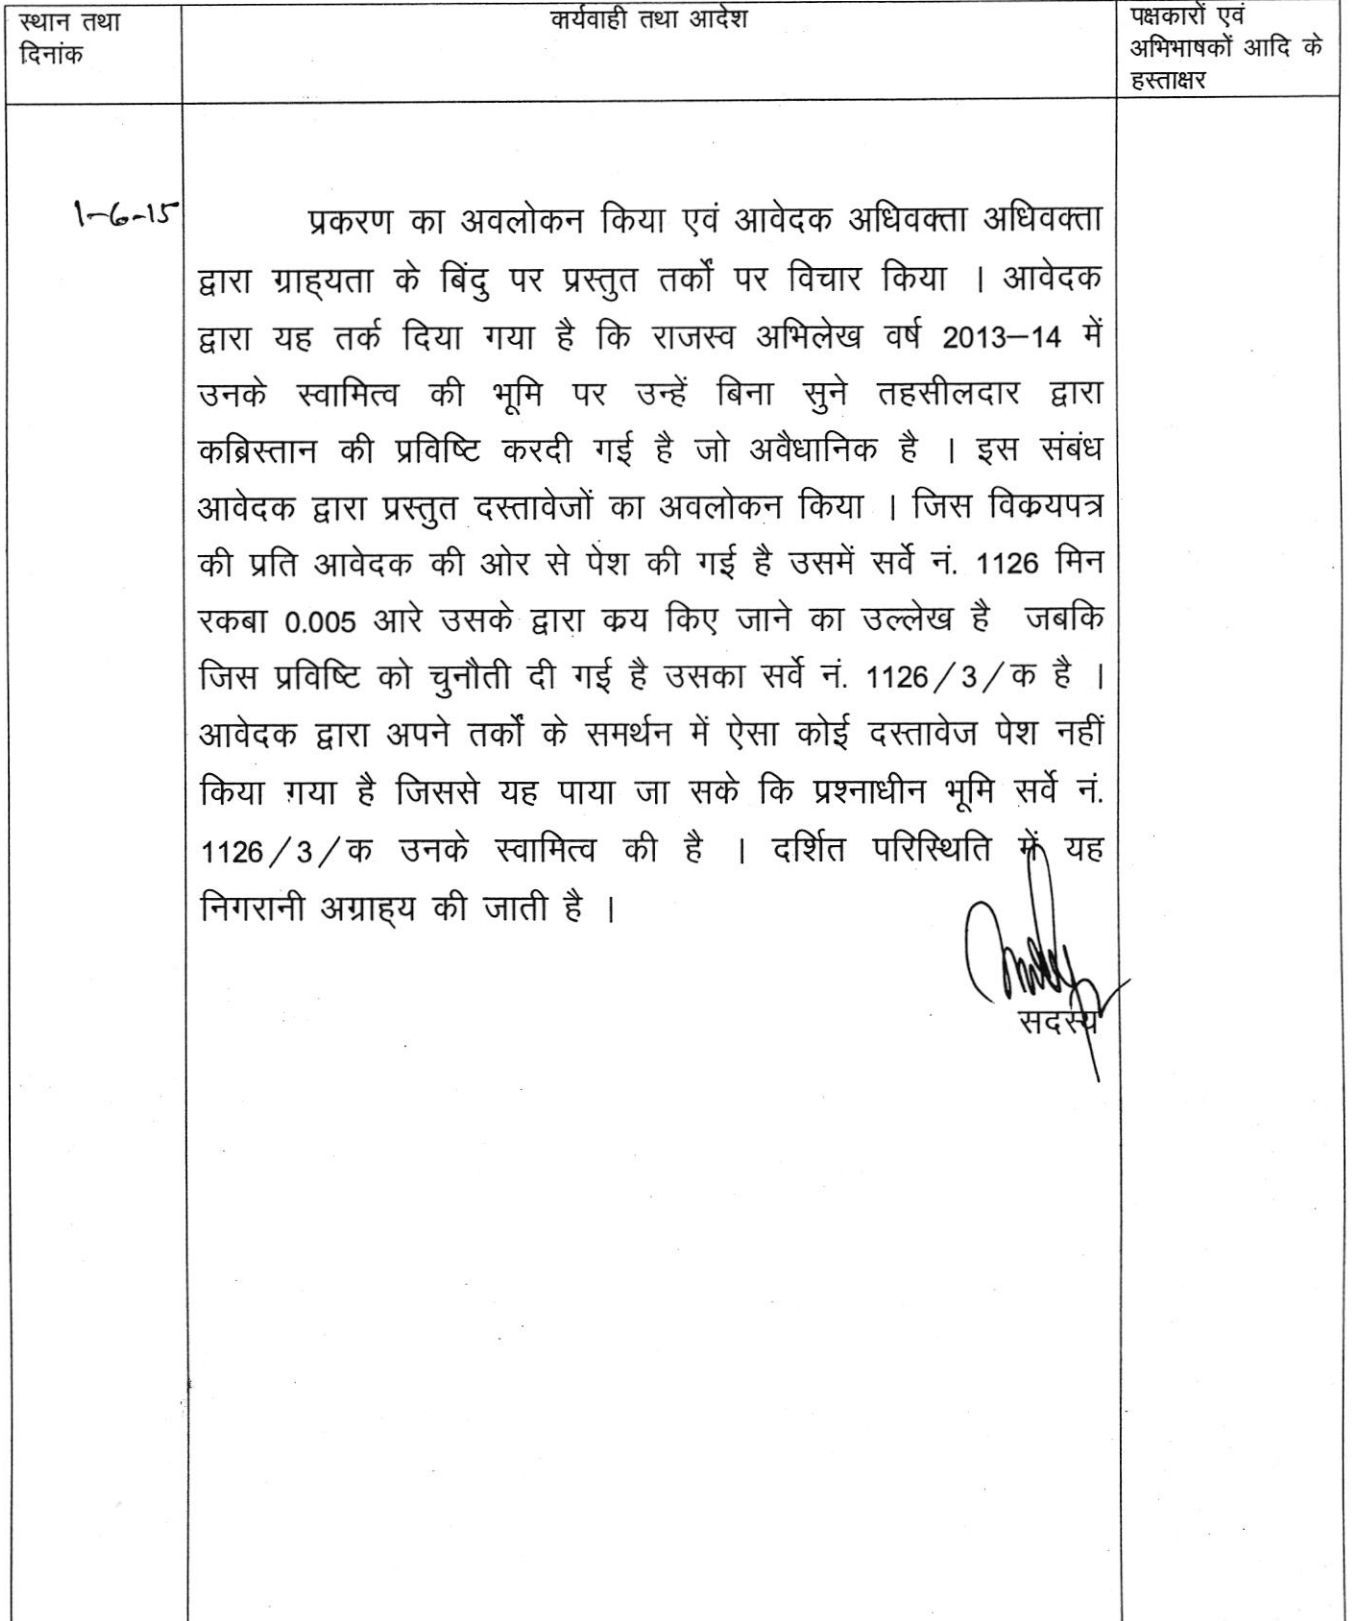 स्थान तथा
दिनांक
कार्यवाही तथा आदेश
पक्षकारों एवं
अभिभाषकों आदि के
हस्ताक्षर
1-6-15
प्रकरण का अवलोकन किया एवं आवेदक अधिवक्ता अधिवक्ता
द्वारा ग्राह्यता के बिंदु पर प्रस्तुत तर्कों पर विचार किया । आवेदक
द्वारा यह तर्क दिया गया है कि राजस्व अभिलेख वर्ष 2013–14 में
उनके स्वामित्व की भूमि पर उन्हें बिना सुने तहसीलदार द्वारा
कब्रिस्तान की प्रविष्टि करदी गई है जो अवैधानिक है । इस संबंध
आवेदक द्वारा प्रस्तुत दस्तावेजों का अवलोकन किया । जिस विक्रयपत्र
की प्रति आवेदक की ओर से पेश की गई है उसमें सर्वे नं. 1126 मिन
रकबा 0.005 आरे उसके द्वारा क्रय किए जाने का उल्लेख है जबकि
जिस प्रविष्टि को चुनौती दी गई है उसका सर्वे नं. 1126/3/क है ।
आवेदक द्वारा अपने तर्कों के समर्थन में ऐसा कोई दस्तावेज पेश नहीं
किया गया है जिससे यह पाया जा सके कि प्रश्नाधीन भूमि सर्वे नं.
1126/3/क उनके स्वामित्व की है । दर्शित परिस्थिति में यह
निगरानी अग्राह्य की जाती है ।
सदस्य